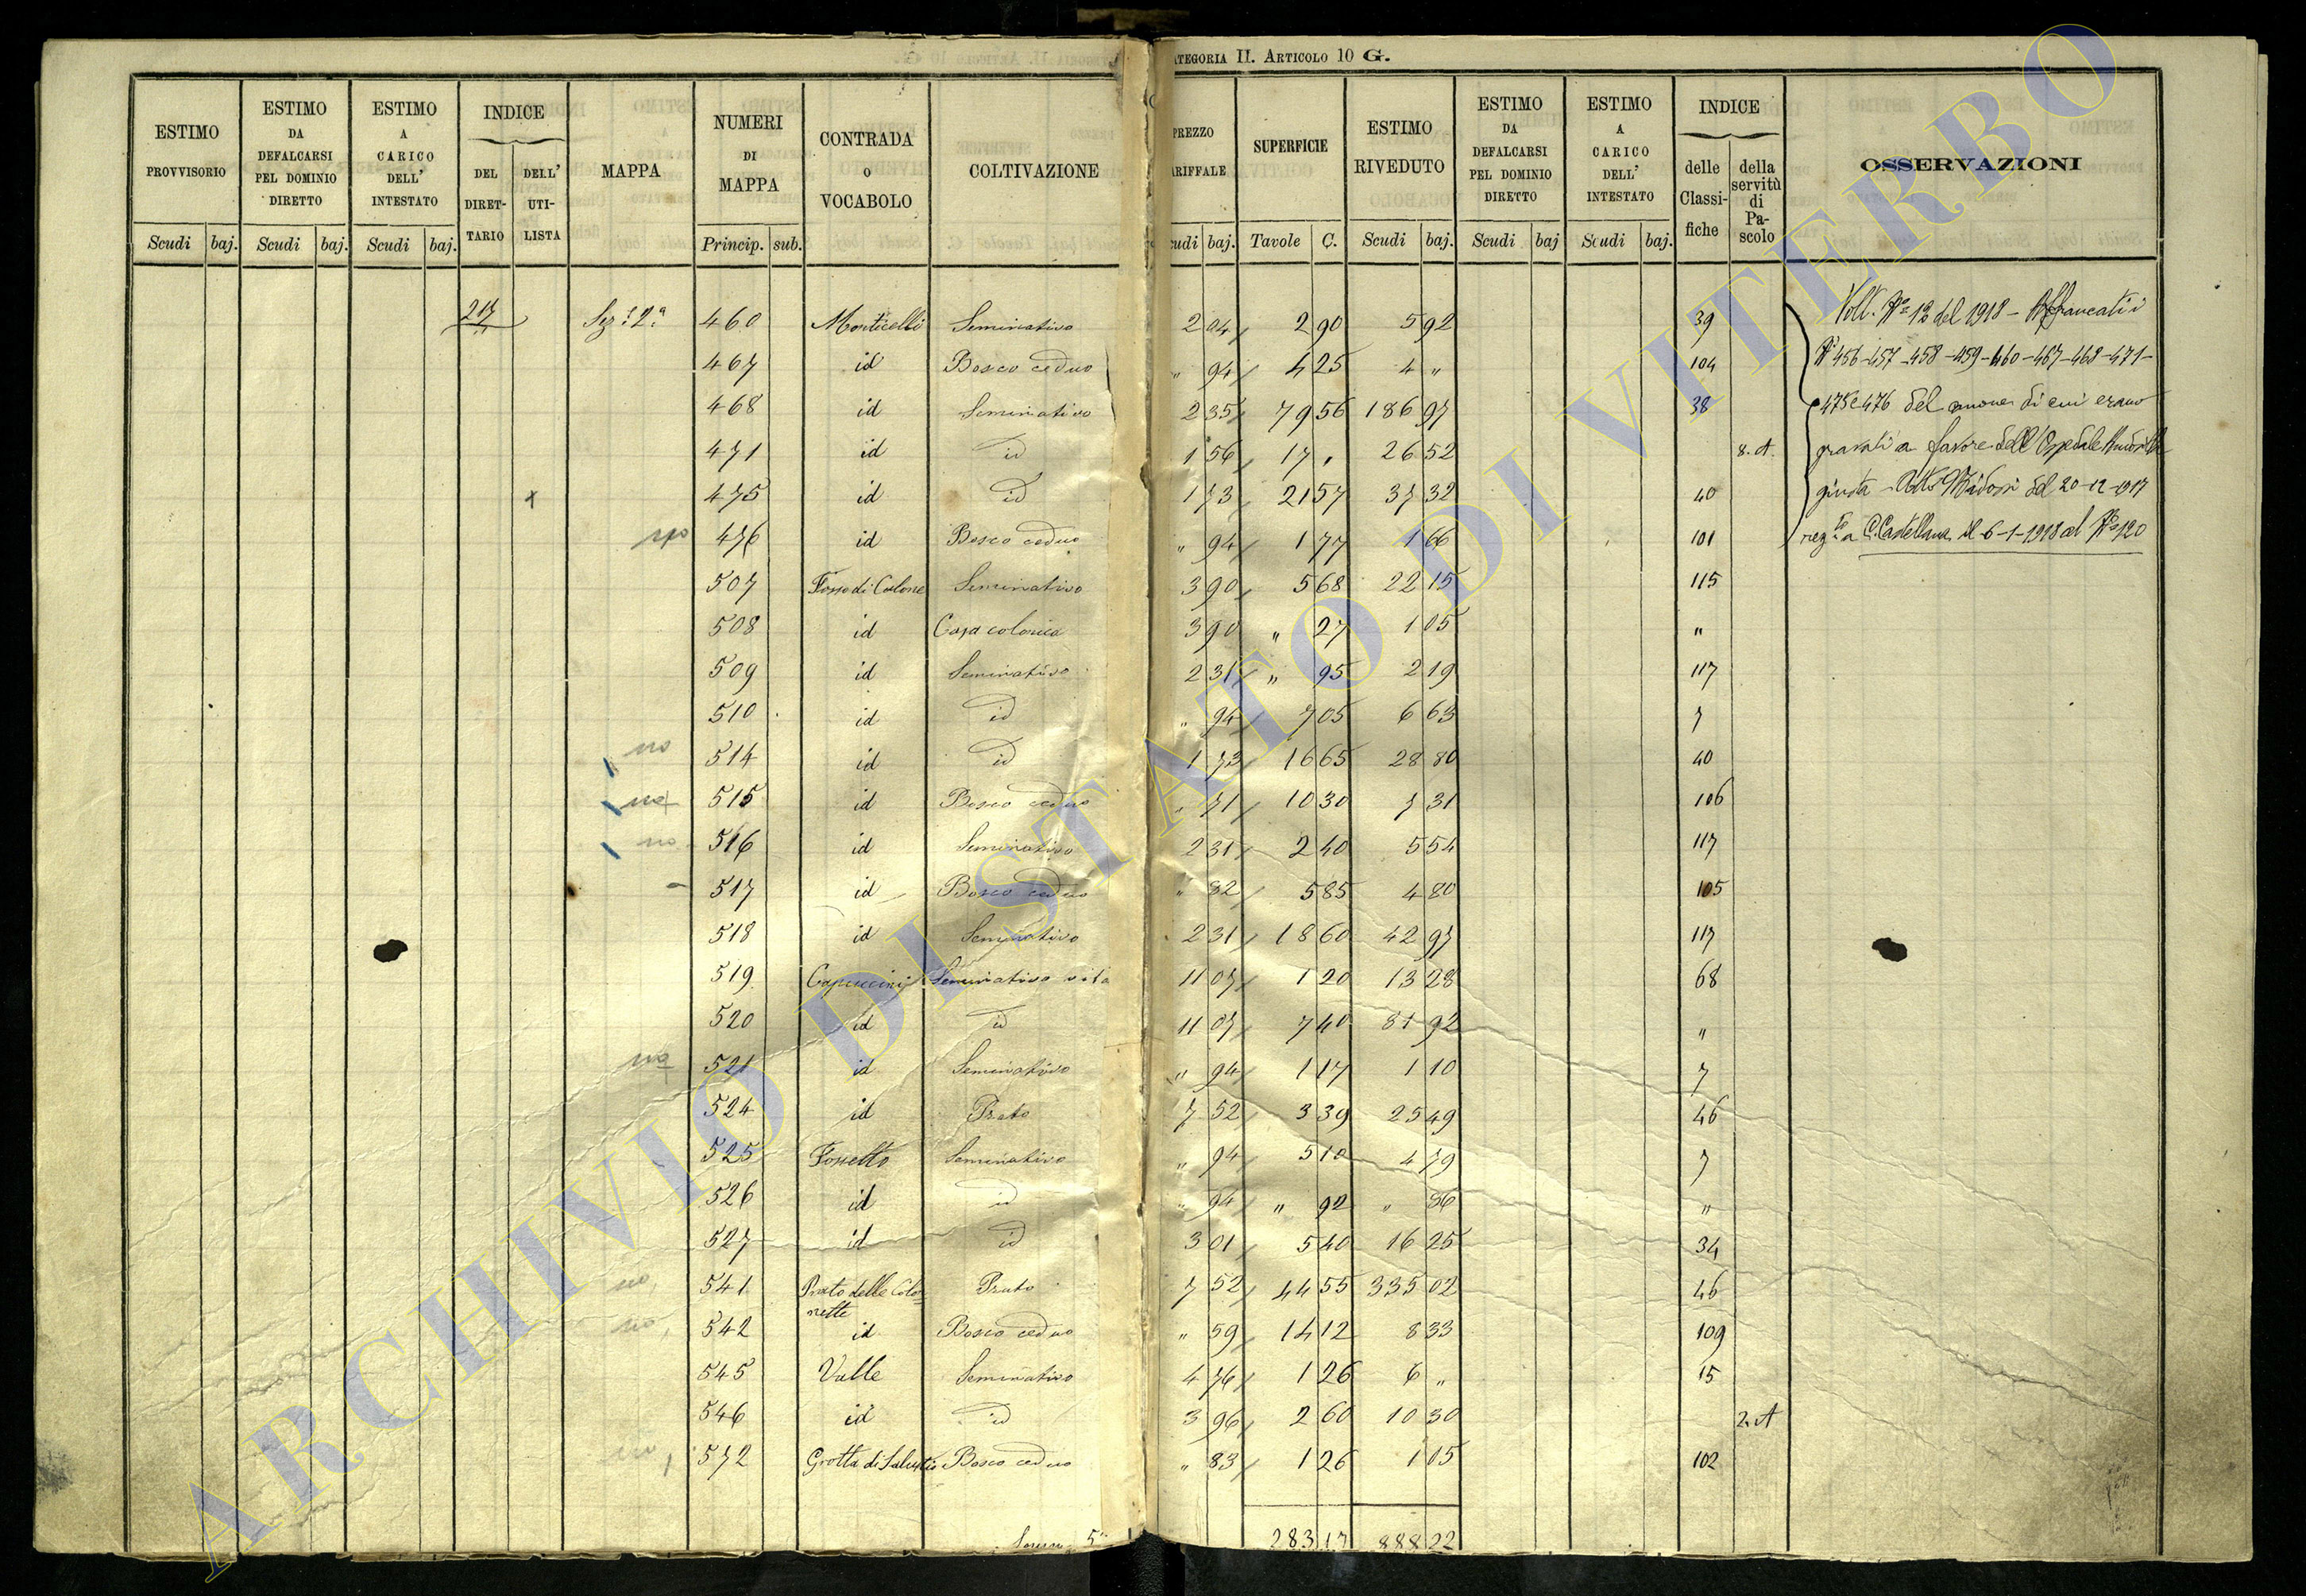 CATEGORIA II. ARTICOLO 10 G.
ESTIMO PROVVISORIO Scudi baj.
ESTIMO DA DEFALCARSI PEL DOMINIO DIRETTO Scudi baj.
ESTIMO A CARICO DELL' INTESTATO Scudi baj.
INDICE DEL DIRETTARIO DELL' UTILISTA
MAPPA
NUMERI DI MAPPA Princip. sub.
CONTRADA O VOCABOLO
COLTIVAZIONE
PREZZO TARIFFALE Scudi baj.
SUPERFICIE Tavole C.
ESTIMO RIVEDUTO Scudi baj.
ESTIMO DA DEFALCARSI PEL DOMINIO DIRETTO Scudi baj
ESTIMO A CARICO DELL' INTESTATO Scudi baj.
INDICE delle Classifiche della servitù di Pascolo
OSSERVAZIONI
217 Sez: 2ª 460 Monticelli Seminativo 2 04 2 90 5 92 39
467 id Bosco ceduo " 94 4 25 4 " 104
468 id Seminativo 2 35 79 56 186 97 38
471 id id 1 56 17 " 26 52 8. A.
+ 475 id id 1 73 21 57 37 32 40
no 476 id Bosco ceduo " 94 1 77 1 66 101
507 Fosso di Colone Seminativo 3 90 5 68 22 15 115
508 id Casa colonica 3 90 " 27 1 05 "
509 id Seminativo 2 31 " 95 2 19 117
510 id id " 94 7 05 6 63 7
no 514 id id 1 73 16 65 28 80 40
no 515 id Bosco ceduo " 71 10 30 7 31 106
no 516 id Seminativo 2 31 2 40 5 54 117
517 id Bosco ceduo " 82 5 85 4 80 105
518 id Seminativo 2 31 18 60 42 97 117
519 Capuccini Seminativo vita 11 07 1 20 13 28 68
520 id id 11 07 7 40 81 92 "
no 521 id Seminativo " 94 1 17 1 10 7
524 id Prato 7 52 3 39 25 49 46
525 Fossetto Seminativo " 94 5 10 4 79 7
526 id id " 94 " 92 " 86 "
527 id id 3 01 5 40 16 25 34
no 541 Prato delle Colonette Prato 7 52 44 55 335 02 46
no 542 id Bosco ceduo " 59 14 12 8 33 109
545 Valle Seminativo 4 76 1 26 6 " 15
546 id id 3 96 2 60 10 30 2. A
no 572 Grotta di Salustio Bosco ceduo " 83 1 26 1 05 102
283 17 888 22
Volt. Nº 12 del 1918 - Affrancati i
Nⁱ 456-457-458-459-460-467-468-471-
475 e 476 del canone di cui erano
gravati a favore dell'Ospedale
giusta Atto del 20-12-1917
regº a C. Castellana il 6-1-1918 al Nº 120
ARCHIVIO DI STATO DI VITERBO